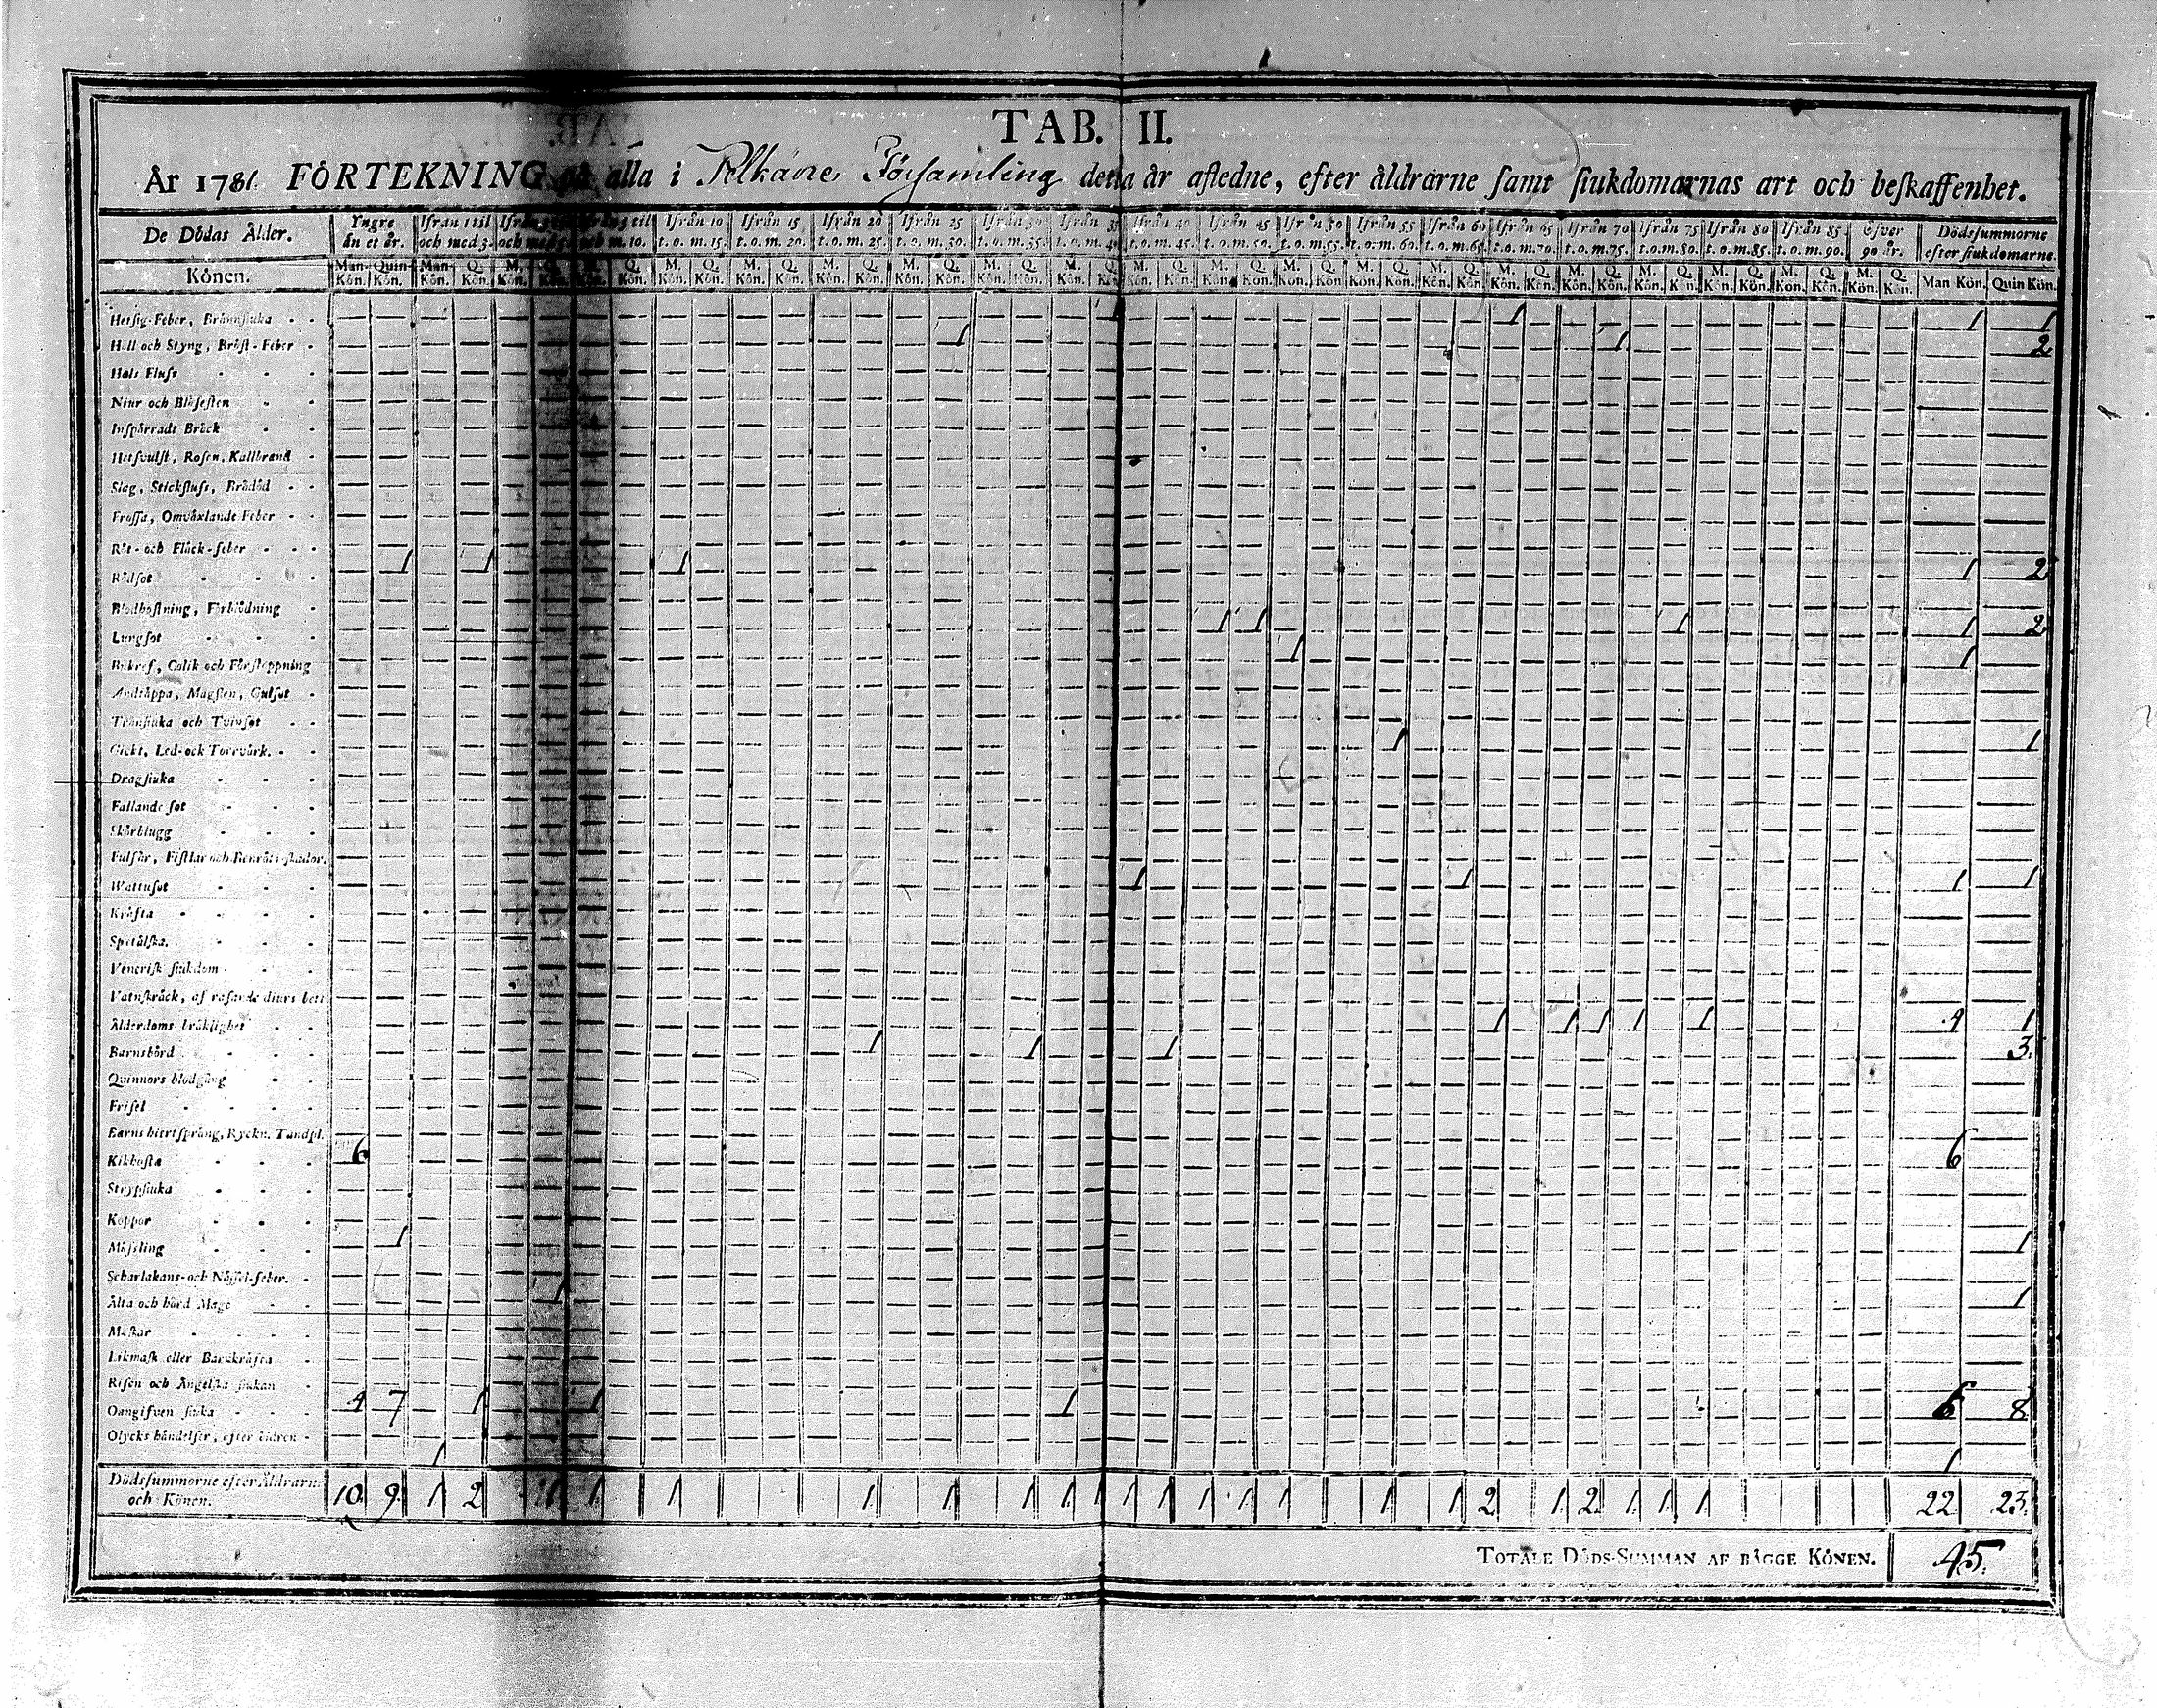 TAB. II.
År 1781. FÖRTEKNING på alla i Pelkäne Församling detta år afledne, efter åldrarne samt siukdomarnas art och beskaffenhet.
De Dödas Ålder. Yngre än et år. Ifrån 1 til och med 3. Ifrån 10 t.o.m. 15. Ifrån 15 t.o.m. 20. Ifrån 20 t.o.m. 25. Ifrån 25 t.o.m. 30. Ifrån 30 t.o.m. 35. Ifrån 35 t.o.m. 40. Ifrån 40 t.o.m. 45. Ifrån 45 t.o.m. 50. Ifrån 50 t.o.m. 55. Ifrån 55 t.o.m. 60. Ifrån 60 t.o.m. 65. Ifrån 65 t.o.m. 70. Ifrån 70 t.o.m. 75. Ifrån 75 t.o.m. 80. Ifrån 80 t.o.m. 85. Ifrån 85 t.o.m. 90. Öfver 90 år. Dödssummorne efter siukdomarne.
Könen. Man-Kön. Quin-Kön. Man-Kön. Q. Kön. M. Kön. Q. Kön. M. Kön. Q. Kön. M. Kön. Q. Kön. M. Kön. Q. Kön. M. Kön. Q. Kön. M. Kön. Q. Kön. M. Kön. Q. Kön. M. Kön. Q. Kön. M. Kön. Q. Kön. M. Kön. Q. Kön. M. Kön. Q. Kön. M. Kön. Q. Kön. M. Kön. Q. Kön. M. Kön. Q. Kön. M. Kön. Q. Kön. M. Kön. Q. Kön. M. Kön. Q. Kön. M. Kön. Q. Kön. M. Kön. Q. Kön. Man Kön. Quin Kön.
Hetsig-Feber, Brännsiuka 1 1 1 1
Håll och Styng, Bröst-Feber 1 1 2
Hals Fluss
Niur och Blåsesten
Inspärradt Bråck
Hetsvulst, Rosen, Kallbrand
Slag, Stickfluss, Brådöd
Frossa, Omväxlande Feber
Röt- och Fläck-feber
Rödsot 1 1 1 1 2
Blodhostning, Förblödning
Lungsot 1 1 1 1 2
Bukref, Colik och Förstoppning 1 1
Andtäppa, Magsten, Gulsot
Trånsiuka och Tvinsot
Gickt, Led- och Torrvärk. 1 1
Dragsiuka
Fallande sot
Skörbiugg
Fulsår, Fistlar och Benröts-skador.
Wattusot 1 1 1 1
Kräfta
Spetälska.
Venerisk siukdom
Vatnskräck, af rasande diurs bett
Ålderdoms bräklighet 1 1 1 1 1 4 1
Barnsbörd 1 1 1 3.
Quinnors blodgång
Frisel
Barns hiertsprång, Ryckn. Tandpl.
Kikhosta 6 6
Strypsiuka
Koppor
Mässling 1 1
Scharlakans- och Nässel-feber.
Älta och hård Mage 1 1
Maskar
Likmask eller Barnkräfta
Risen och Ängelska siukan
Oangifven siuka 4 7 1 1 1 6 8
Olycks händelser, efter Lidren 1 1
Dödssummorne efter Åldrarne och Könen. 10. 9. 1 2 1 1. 1 1 1. 1. 1. 1 1 1 1. 1. 1 1. 1. 2. 1. 2. 1. 1. 1. 22 23.
TOTALE DÖDS-SUMMAN AF BÄGGE KÖNEN. 45.